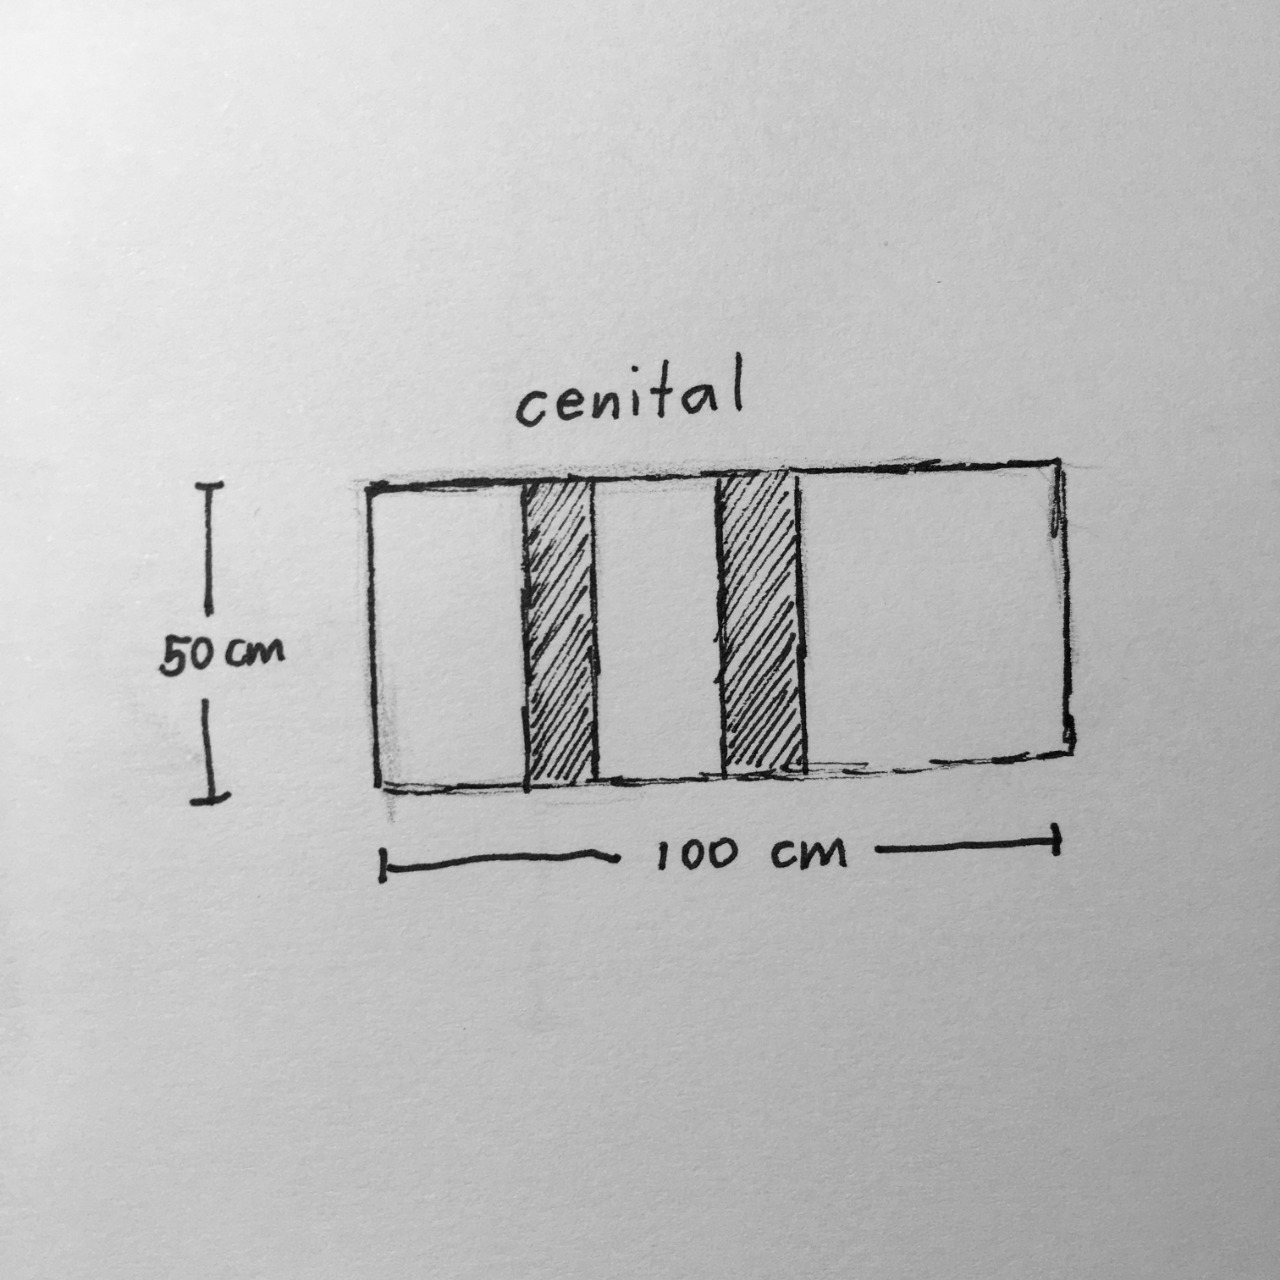 cenital
50 cm
100 cm